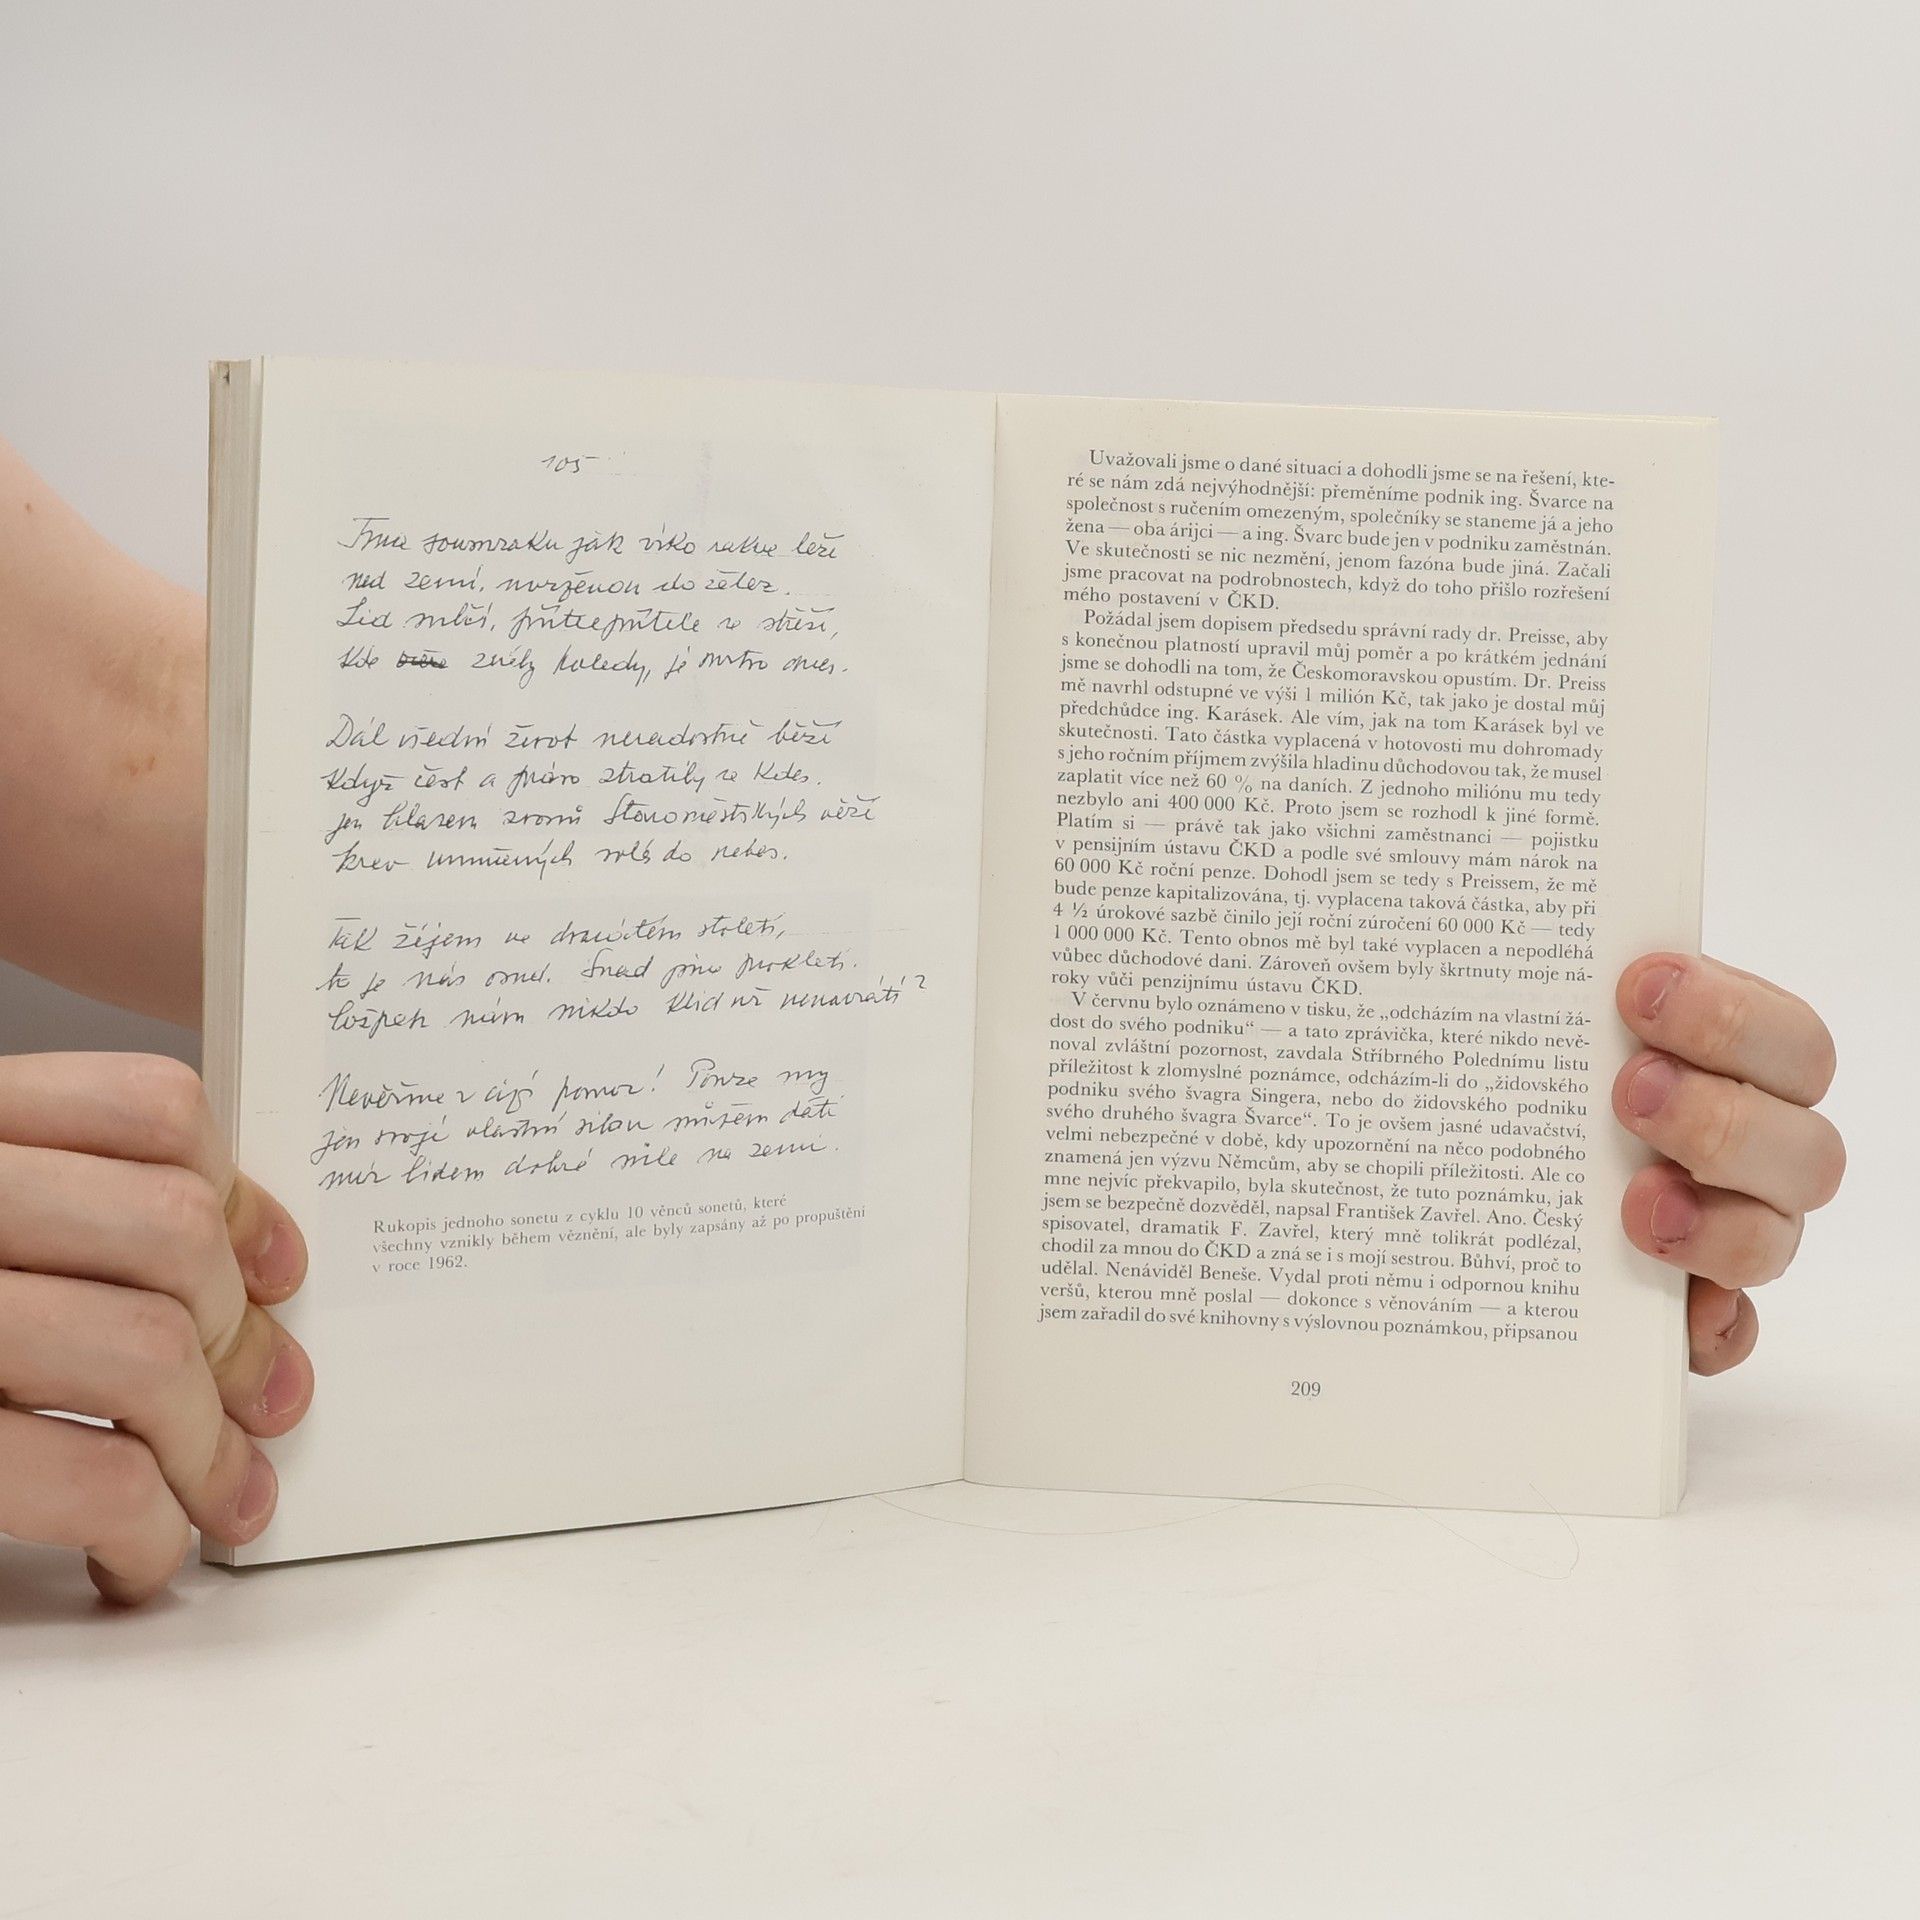 105
Tma soumraku jak víko rakve leží
nad zemí, uvrženou do želez.
Lid mlčí, přítel přítele se střeží,
kde zněly koledy, je mrtvo dnes.
Dál všední život neradostně běží
když čest a právo ztratily se kdes.
jen hlasem zvonů Staroměstských věží
krev umučených volá do nebes.
Tak žijem ve dvacátém století,
to je nás osud. Snad jsme prokletí.
Což pak nám nikdo klid už nenavrátí?
Nevěřme v cizí pomoc! Pouze my
jen svojí vlastní silou můžem dáti
mír lidem dobré vůle na zemi.
Rukopis jednoho sonetu z cyklu 10 věnců sonetů, které
všechny vznikly během věznění, ale byly zapsány až po propuštění
v roce 1962.
Uvažovali jsme o dané situaci a dohodli jsme se na řešení, kte-
ré se nám zdá nejvýhodnější: přeměníme podnik ing. Švarce na
společnost s ručením omezeným, společníky se staneme já a jeho
žena — oba árijci — a ing. Švarc bude jen v podniku zaměstnán.
Ve skutečnosti se nic nezmění, jenom fazóna bude jiná. Začali
jsme pracovat na podrobnostech, když do toho přišlo rozřešení
mého postavení v ČKD.
Požádal jsem dopisem předsedu správní rady dr. Preisse, aby
s konečnou platností upravil můj poměr a po krátkém jednání
jsme se dohodli na tom, že Českomoravskou opustím. Dr. Preiss
mě navrhl odstupné ve výši 1 milión Kč, tak jako je dostal můj
předchůdce ing. Karásek. Ale vím, jak na tom Karásek byl ve
skutečnosti. Tato částka vyplacená v hotovosti mu dohromady
s jeho ročním příjmem zvýšila hladinu důchodovou tak, že musel
zaplatit více než 60 % na daních. Z jednoho miliónu mu tedy
nezbylo ani 400 000 Kč. Proto jsem se rozhodl k jiné formě.
Platím si — právě tak jako všichni zaměstnanci — pojistku
v pensijním ústavu ČKD a podle své smlouvy mám nárok na
60 000 Kč roční penze. Dohodl jsem se tedy s Preissem, že mě
bude penze kapitalizována, tj. vyplacena taková částka, aby při
4 ½ úrokové sazbě činilo její roční zúročení 60 000 Kč — tedy
1 000 000 Kč. Tento obnos mě byl také vyplacen a nepodléhá
vůbec důchodové dani. Zároveň ovšem byly škrtnuty moje ná-
roky vůči penzijnímu ústavu ČKD.
V červnu bylo oznámeno v tisku, že „odcházím na vlastní žá-
dost do svého podniku“ — a tato zprávička, které nikdo nevě-
noval zvláštní pozornost, zavdala Stříbrného Polednímu listu
příležitost k zlomyslné poznámce, odcházím-li do „židovského
podniku svého švagra Singera, nebo do židovského podniku
svého druhého švagra Švarce“. To je ovšem jasné udavačství,
velmi nebezpečné v době, kdy upozornění na něco podobného
znamená jen výzvu Němcům, aby se chopili příležitosti. Ale co
mne nejvíc překvapilo, byla skutečnost, že tuto poznámku, jak
jsem se bezpečně dozvěděl, napsal František Zavřel. Ano. Český
spisovatel, dramatik F. Zavřel, který mně tolikrát podlézal,
chodil za mnou do ČKD a zná se i s mojí sestrou. Bůhví, proč to
udělal. Nenáviděl Beneše. Vydal proti němu i odpornou knihu
veršů, kterou mně poslal — dokonce s věnováním — a kterou
jsem zařadil do své knihovny s výslovnou poznámkou, připsanou
209